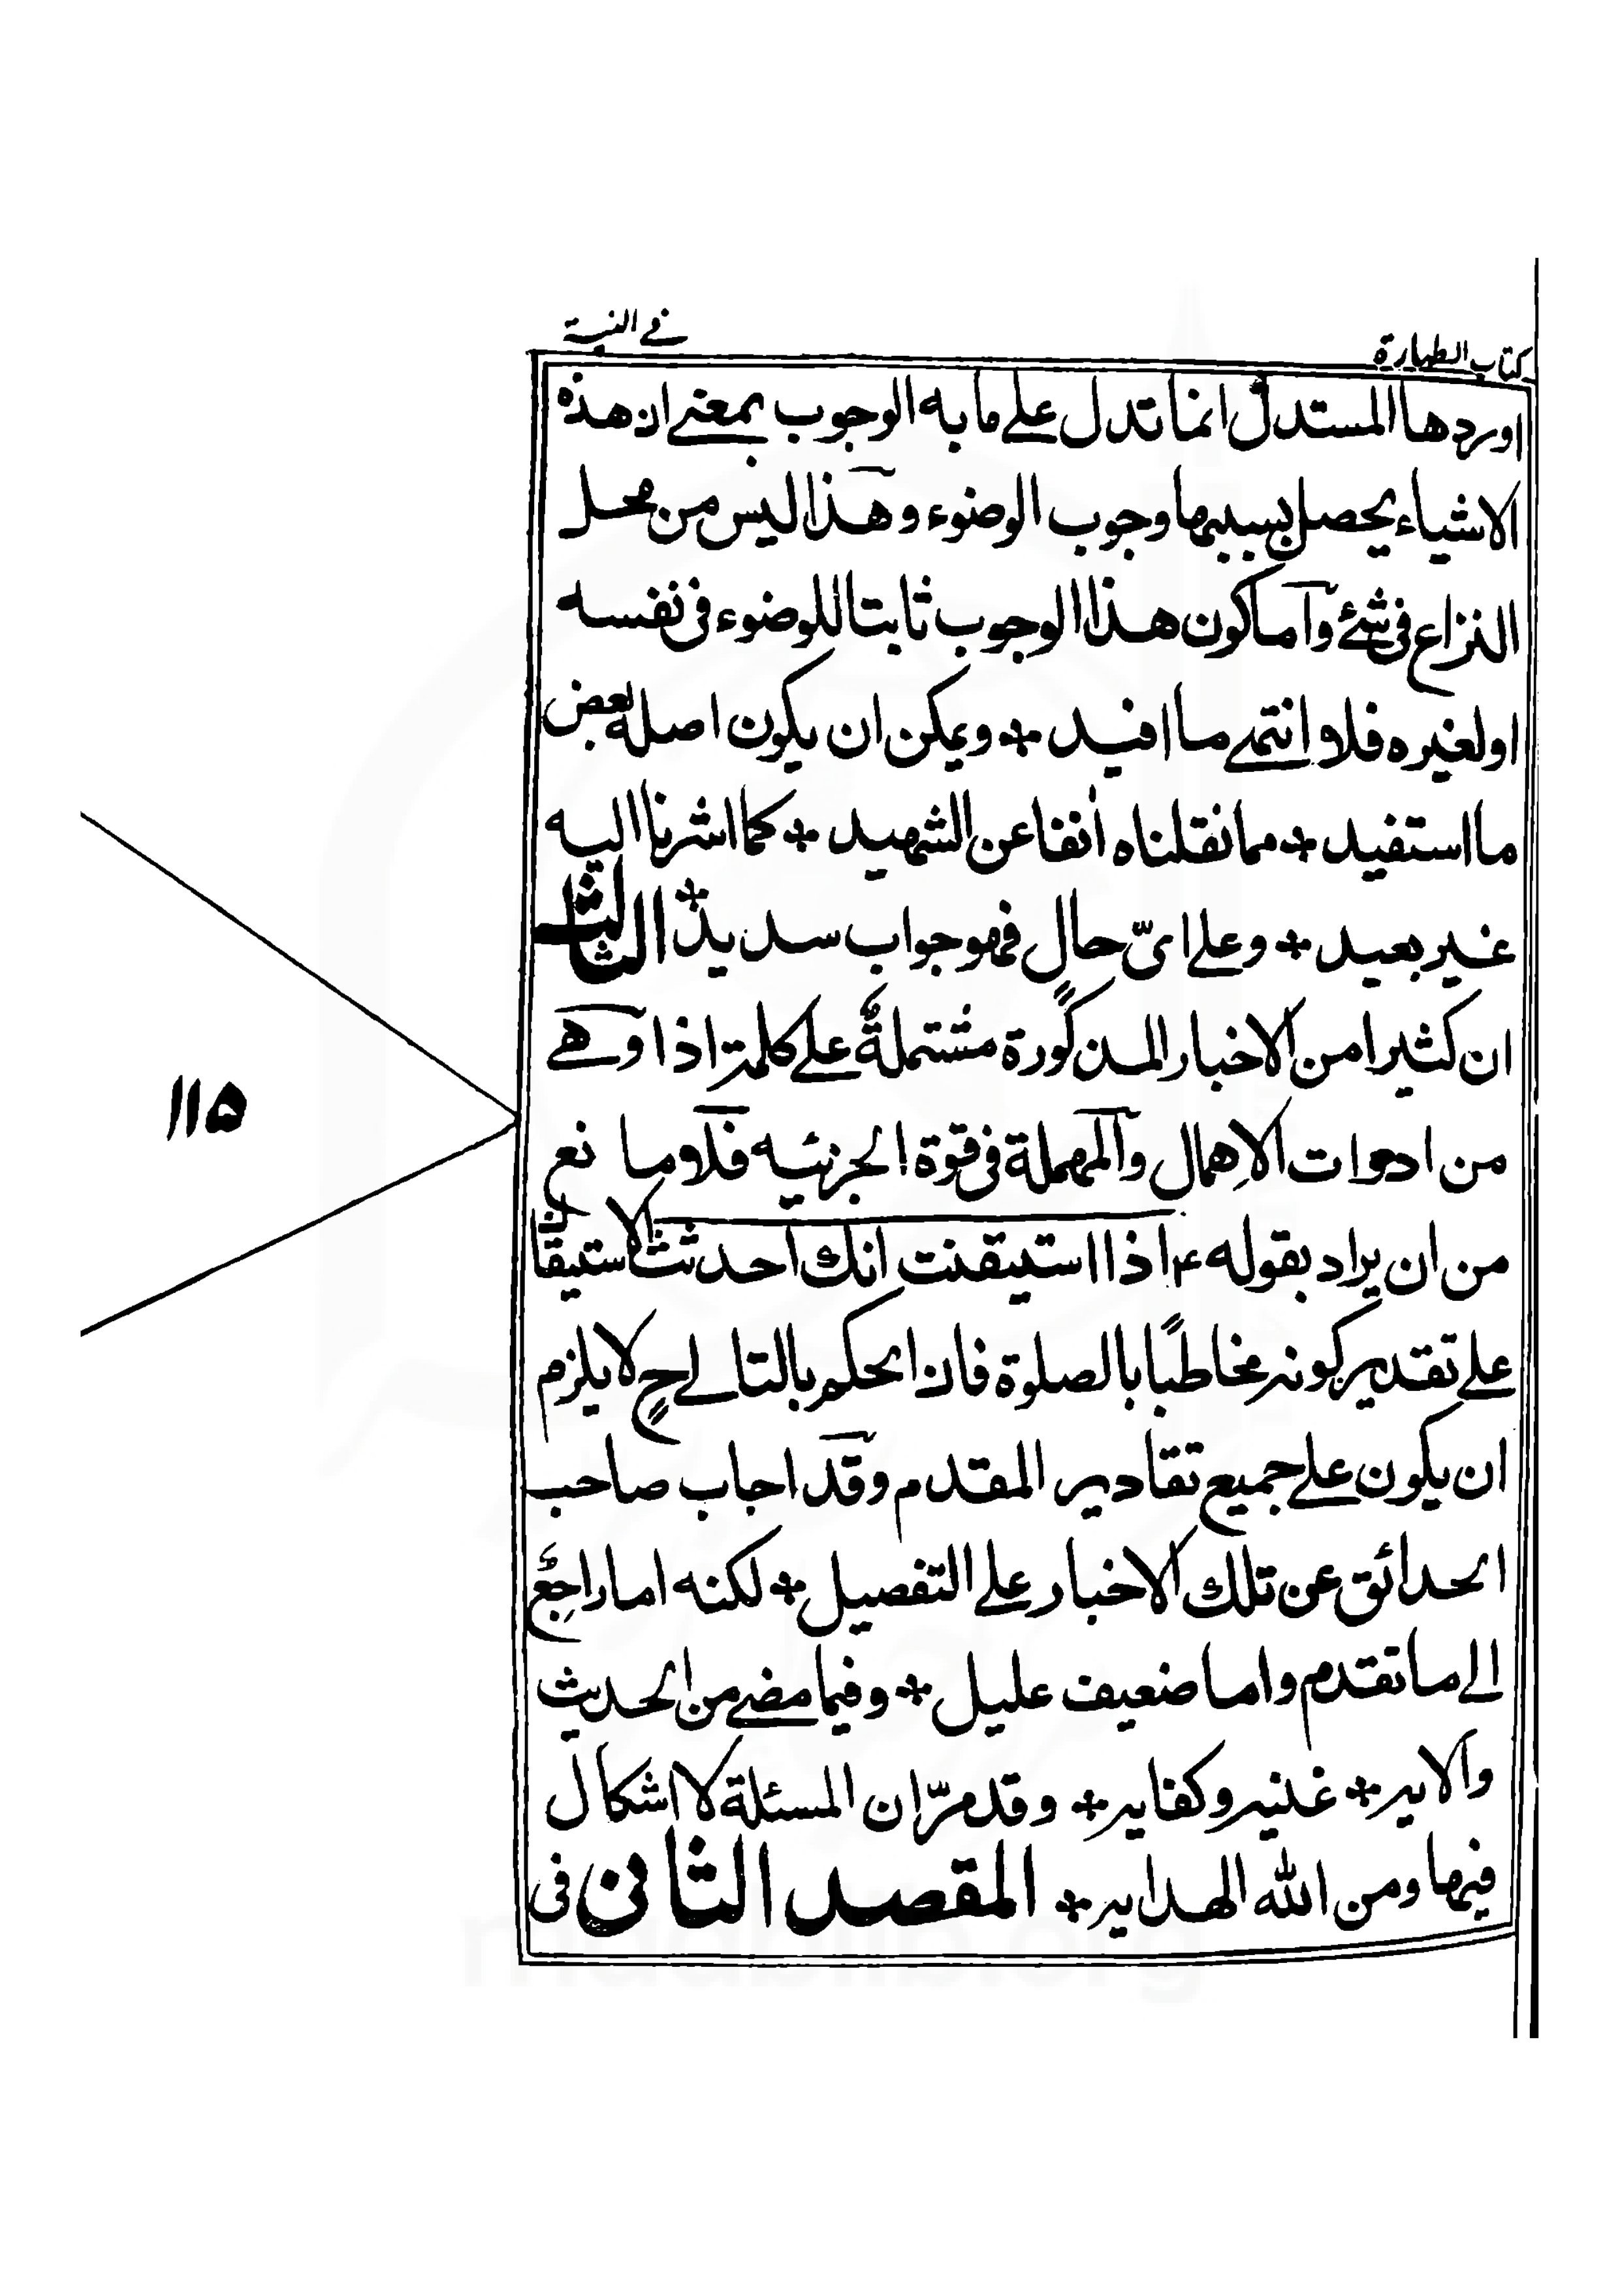 كتاب الطهارة
في النية
اوردها المستدلّ انما تدل على ما به الوجوب بمعنى ان هذه
الاشياء يحصل بسببها وجوب الوضوء وهذا ليس من محل
النزاع في شئ واما كون هذا الوجوب ثابتا للوضوء في نفسه
او لغيره فلا وانتهى ما افيد * ويمكن ان يكون اصله بعض
ما استفيد * مما نقلناه اٰنفا عن الشهيد * كما اشرنا اليه
غير بعيد * وعلى ايّ حال فهو جواب سديد * الثالث
ان كثيرا من الاخبار المذكورة مشتملةٌ على كلمة اذا وهى
من ادوات الاِهمال والمهملة في قوة الجزئيه فلا وما نع
من ان يراد بقوله ۴ اذا استيقنت انك احدثت الاستيقان
على تقدير كونه مخاطبًا بالصلوة فان الحكم بالتالي حٍ لا يلزم
ان يكون على جميع تقادير المقدم وقد اجاب صاحب
الحدائق عن تلك الاخبار على التفصيل * لكنه اما راجِعٌ
الى ما تقدم واما ضعيف عليل * وفيما مضى من الحديث
والايه * غنيه وكفايه * وقد مرّ ان المسئلة لا اشكال
فيها ومن الله الهدايه * المقصد الثاني في
۱۱۵